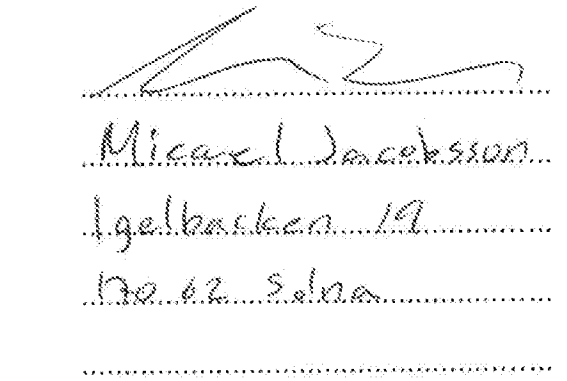 Micael Jacobsson
Igelbacken 19
170 62 Solna